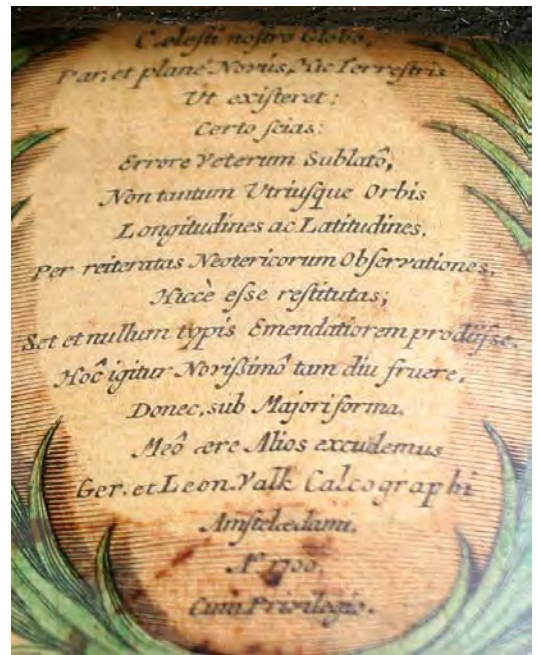 Cœlesti nostro Globo,
Par, et planè Novus, Hic Terrestris
Ut existeret;
Certo scias:
Errore Veterum Sublatô,
Non tantum Utriusque Orbis
Longitudines ac Latitudines,
Per reiteratas Neotericorum Observationes,
Hiccè esse restitutas;
Set et nullum typis Emendatiorem prodiisse.
Hoĉ igitur Novissimô tam diu fruere,
Donec, sub Majori forma.
Meô ære Alios excudemus
Ger. et Leon. Valk Calcographi
Amstelædami,
Aº 1700.
Cum Privilegio.